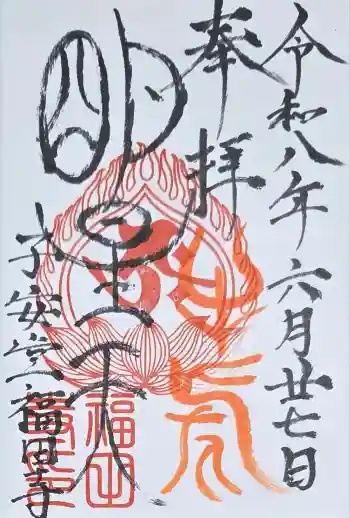 令和八年六月廿七日
奉拝
明星天
子安堂福田寺
福田
寺印